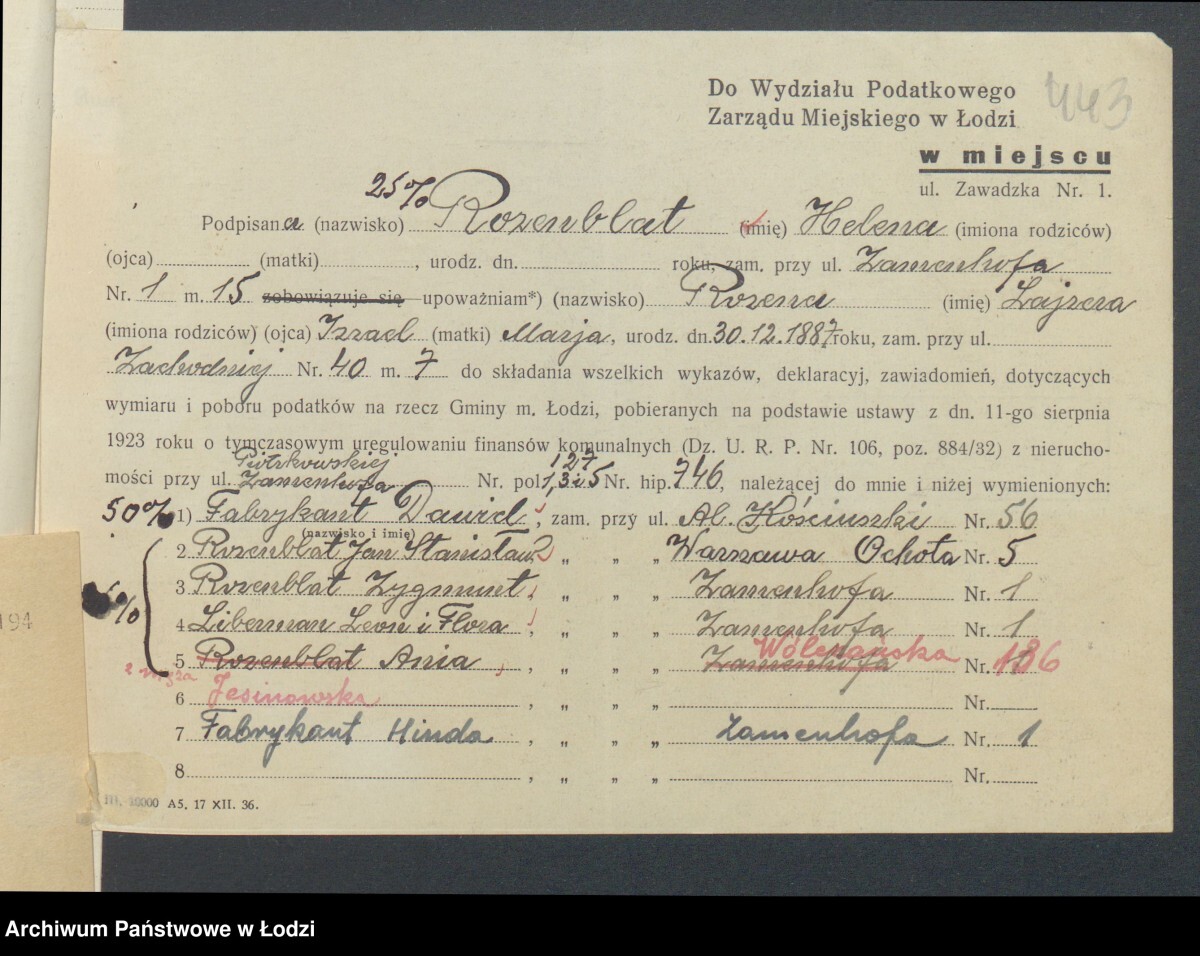 Do Wydziału Podatkowego
443
Zarządu Miejskiego w Łodzi
w miejscu
ul. Zawadzka Nr. 1.
25%
Podpisana (nazwisko) Rozenblat (imię) Helena (imiona rodziców)
(ojca) (matki) , urodz. dn. roku, zam. przy ul. Zamenhofa
Nr. 1 m. 15 zobowiązuje się upoważniam*) (nazwisko) Rozena (imię) Lajzera
(imiona rodziców) (ojca) Izrael (matki) Marja, urodz. dn. 30.12.1887 roku, zam. przy ul.
Zachodniej Nr. 40 m. 7 do składania wszelkich wykazów, deklaracyj, zawiadomień, dotyczących
wymiaru i poboru podatków na rzecz Gminy m. Łodzi, pobieranych na podstawie ustawy z dn. 11-go sierpnia
1923 roku o tymczasowym uregulowaniu finansów komunalnych (Dz. U. R. P. Nr. 106, poz. 884/32) z nierucho-
Piotrkowskiej 127
mości przy ul. Zamenhofa Nr. pol. 1, 3 i 5 Nr. hip. 746, należącej do mnie i niżej wymienionych:
50% 1) Fabrykant Dawid, zam. przy ul. Al. Kościuszki Nr. 56
(nazwisko i imię)
2 Rozenblat Jan Stanisław „ „ „ Warszawa Ochota Nr. 5
3 Rozenblat Zygmunt, „ „ „ Zamenhofa Nr. 1
4 Liberman Leon i Flora , „ „ „ Zamenhofa Nr. 1
Wólczańska
5 Rozenblat Ania , „ „ „ Zamenhofa Nr. 186
z męża
6 Jesinowska , „ „ „ Nr.
7 Fabrykant Hinda , „ „ „ Zamenhofa Nr. 1
8 , „ „ „ Nr.
194
III. 10000 A5. 17 XII. 36.
Archiwum Państwowe w Łodzi